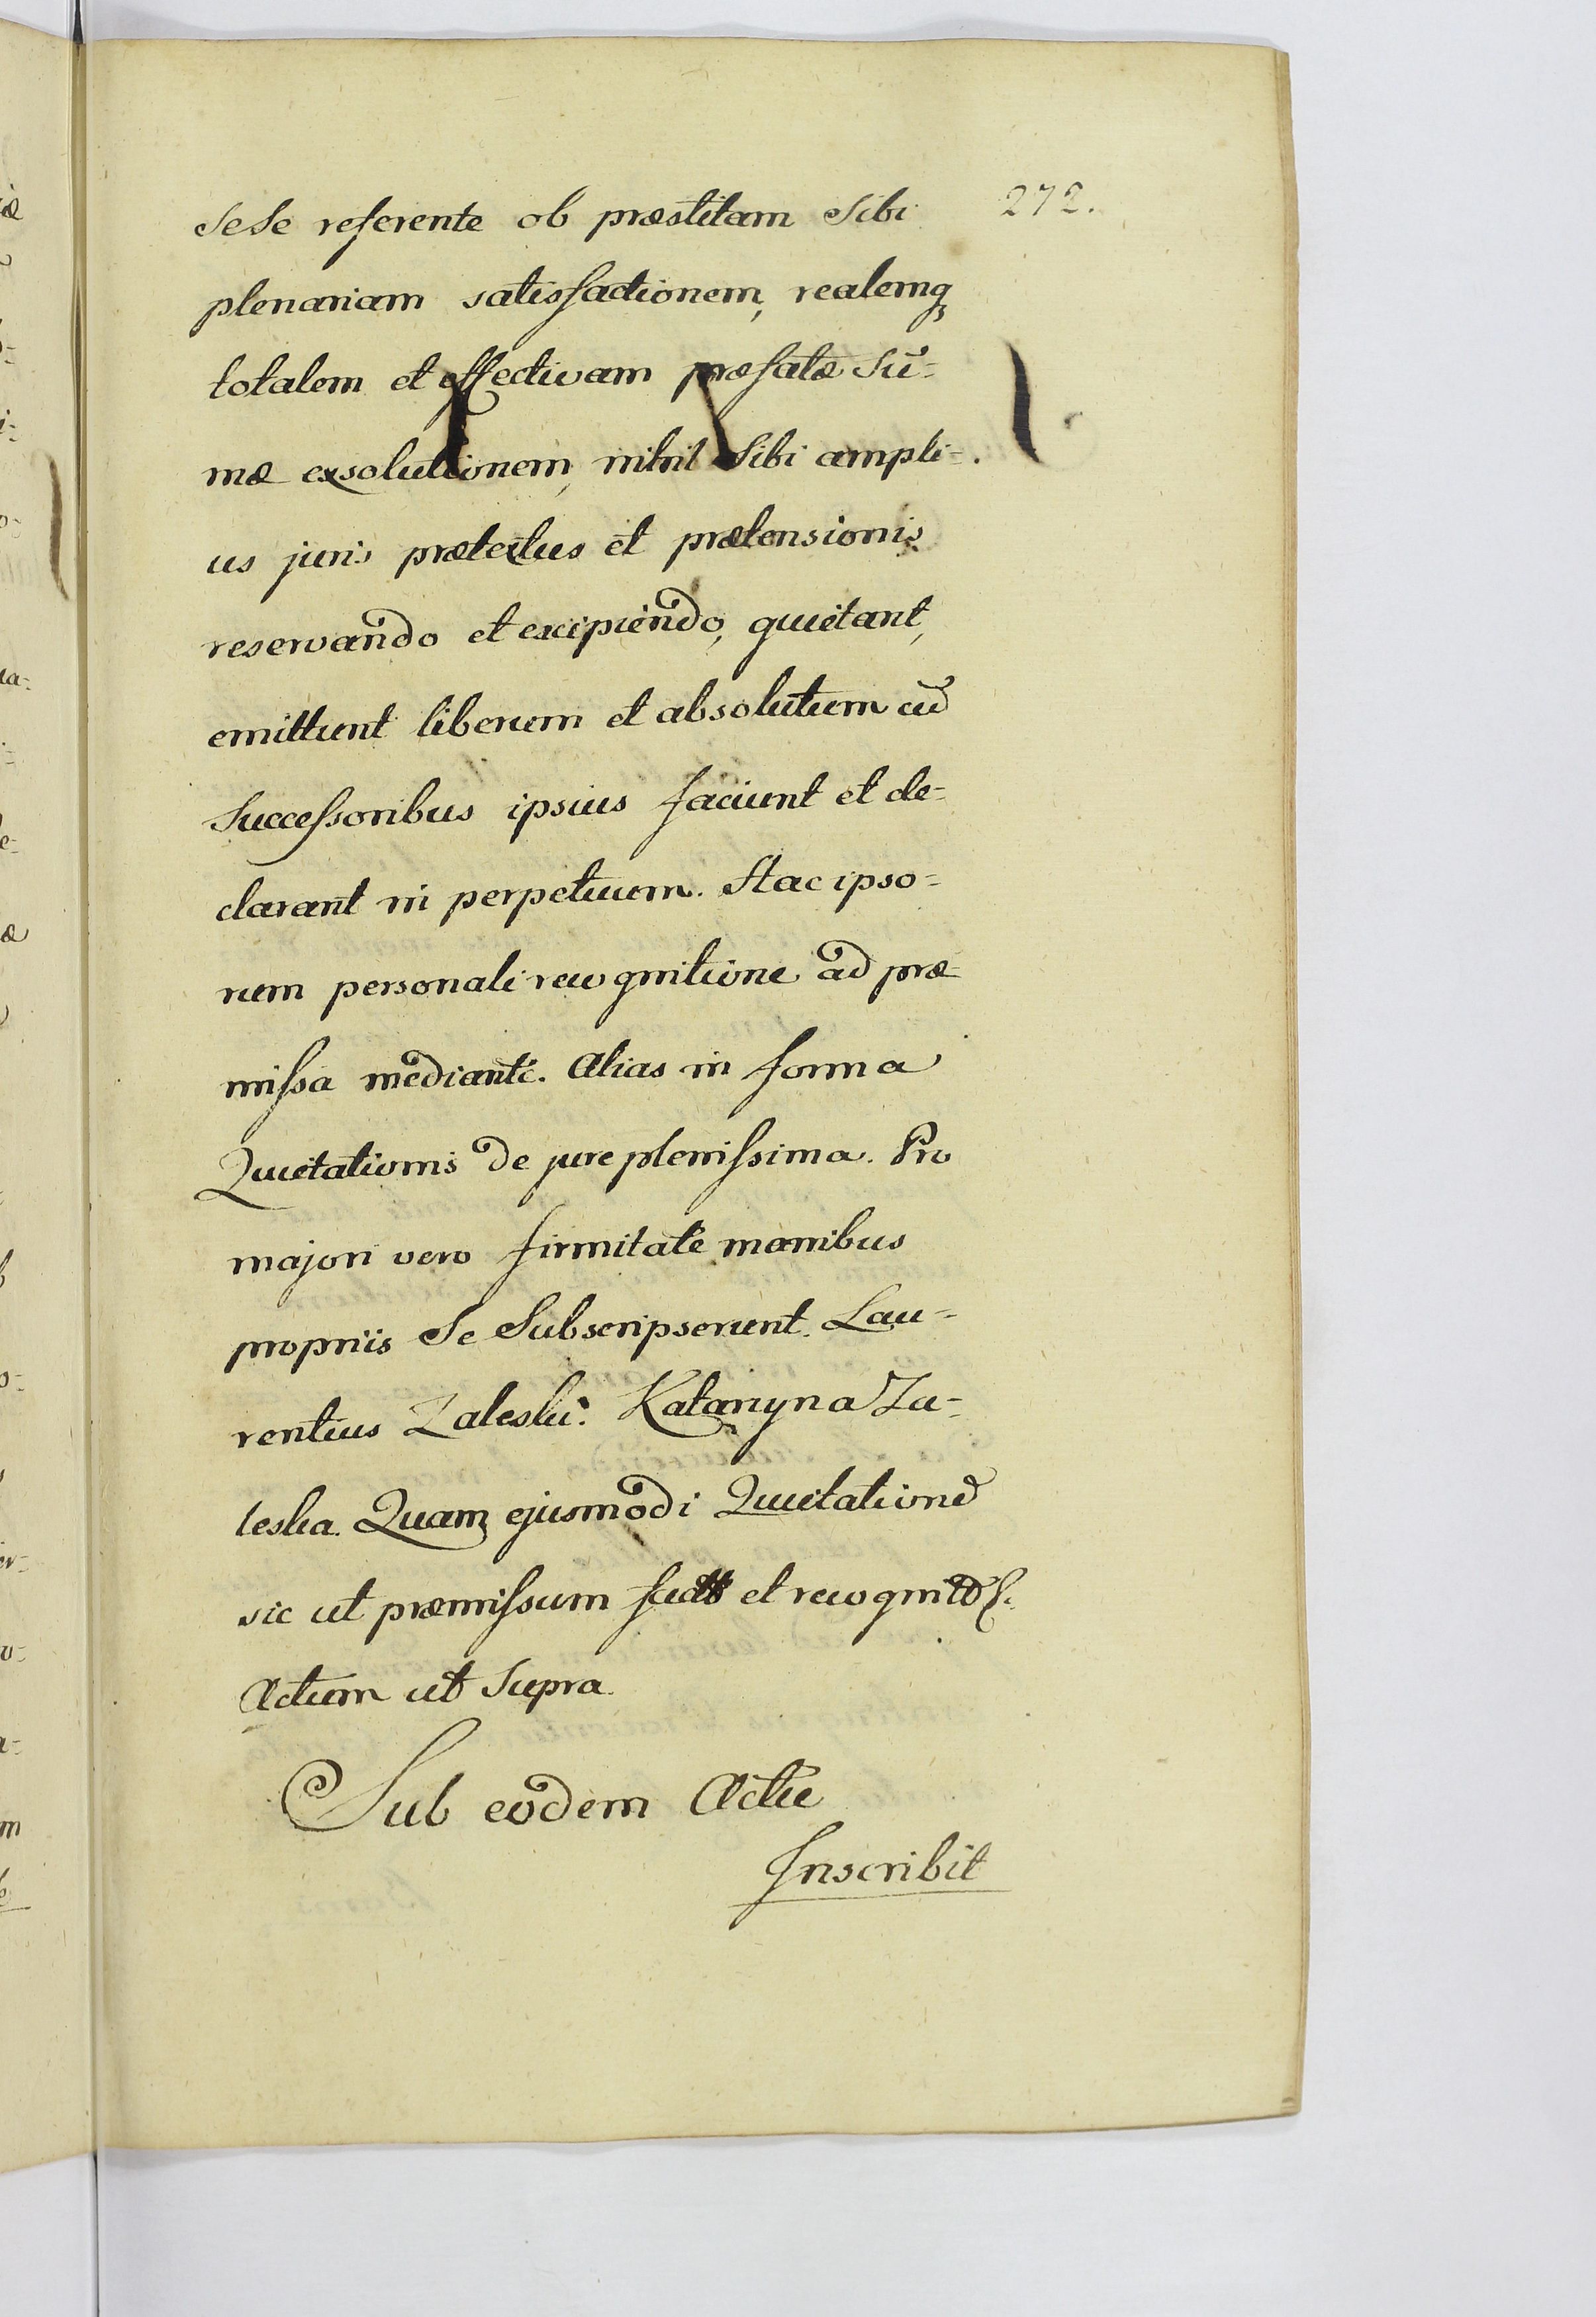 272.
Sese referente ob præstitam Sibi
plenariam satisfactionem, realemq
totalem et effectivam præfatæ Sū-
mæ exsolutionem, nihil Sibi ampli-
us juris prætextus et prætensionis
reservando et excipiendo, quietant,
emittunt liberum et absolutum cū
Successoribus ipsius faciunt et de-
clarant in perpetuum. Hac ipso-
rum personali recognitione ad præ
missa mediante. Alias in forma
Quietationis de jure plenissima. Pro
majori vero firmitate manibus
propriis Se Subscripserunt. Lau-
rentius Zaleski. Katarzyna Za-
leska. Quam ejusmodi Quietationē
sic ut præmissum et recognit
Actum ut Supra.
Sub eodem Actu
Inscribit